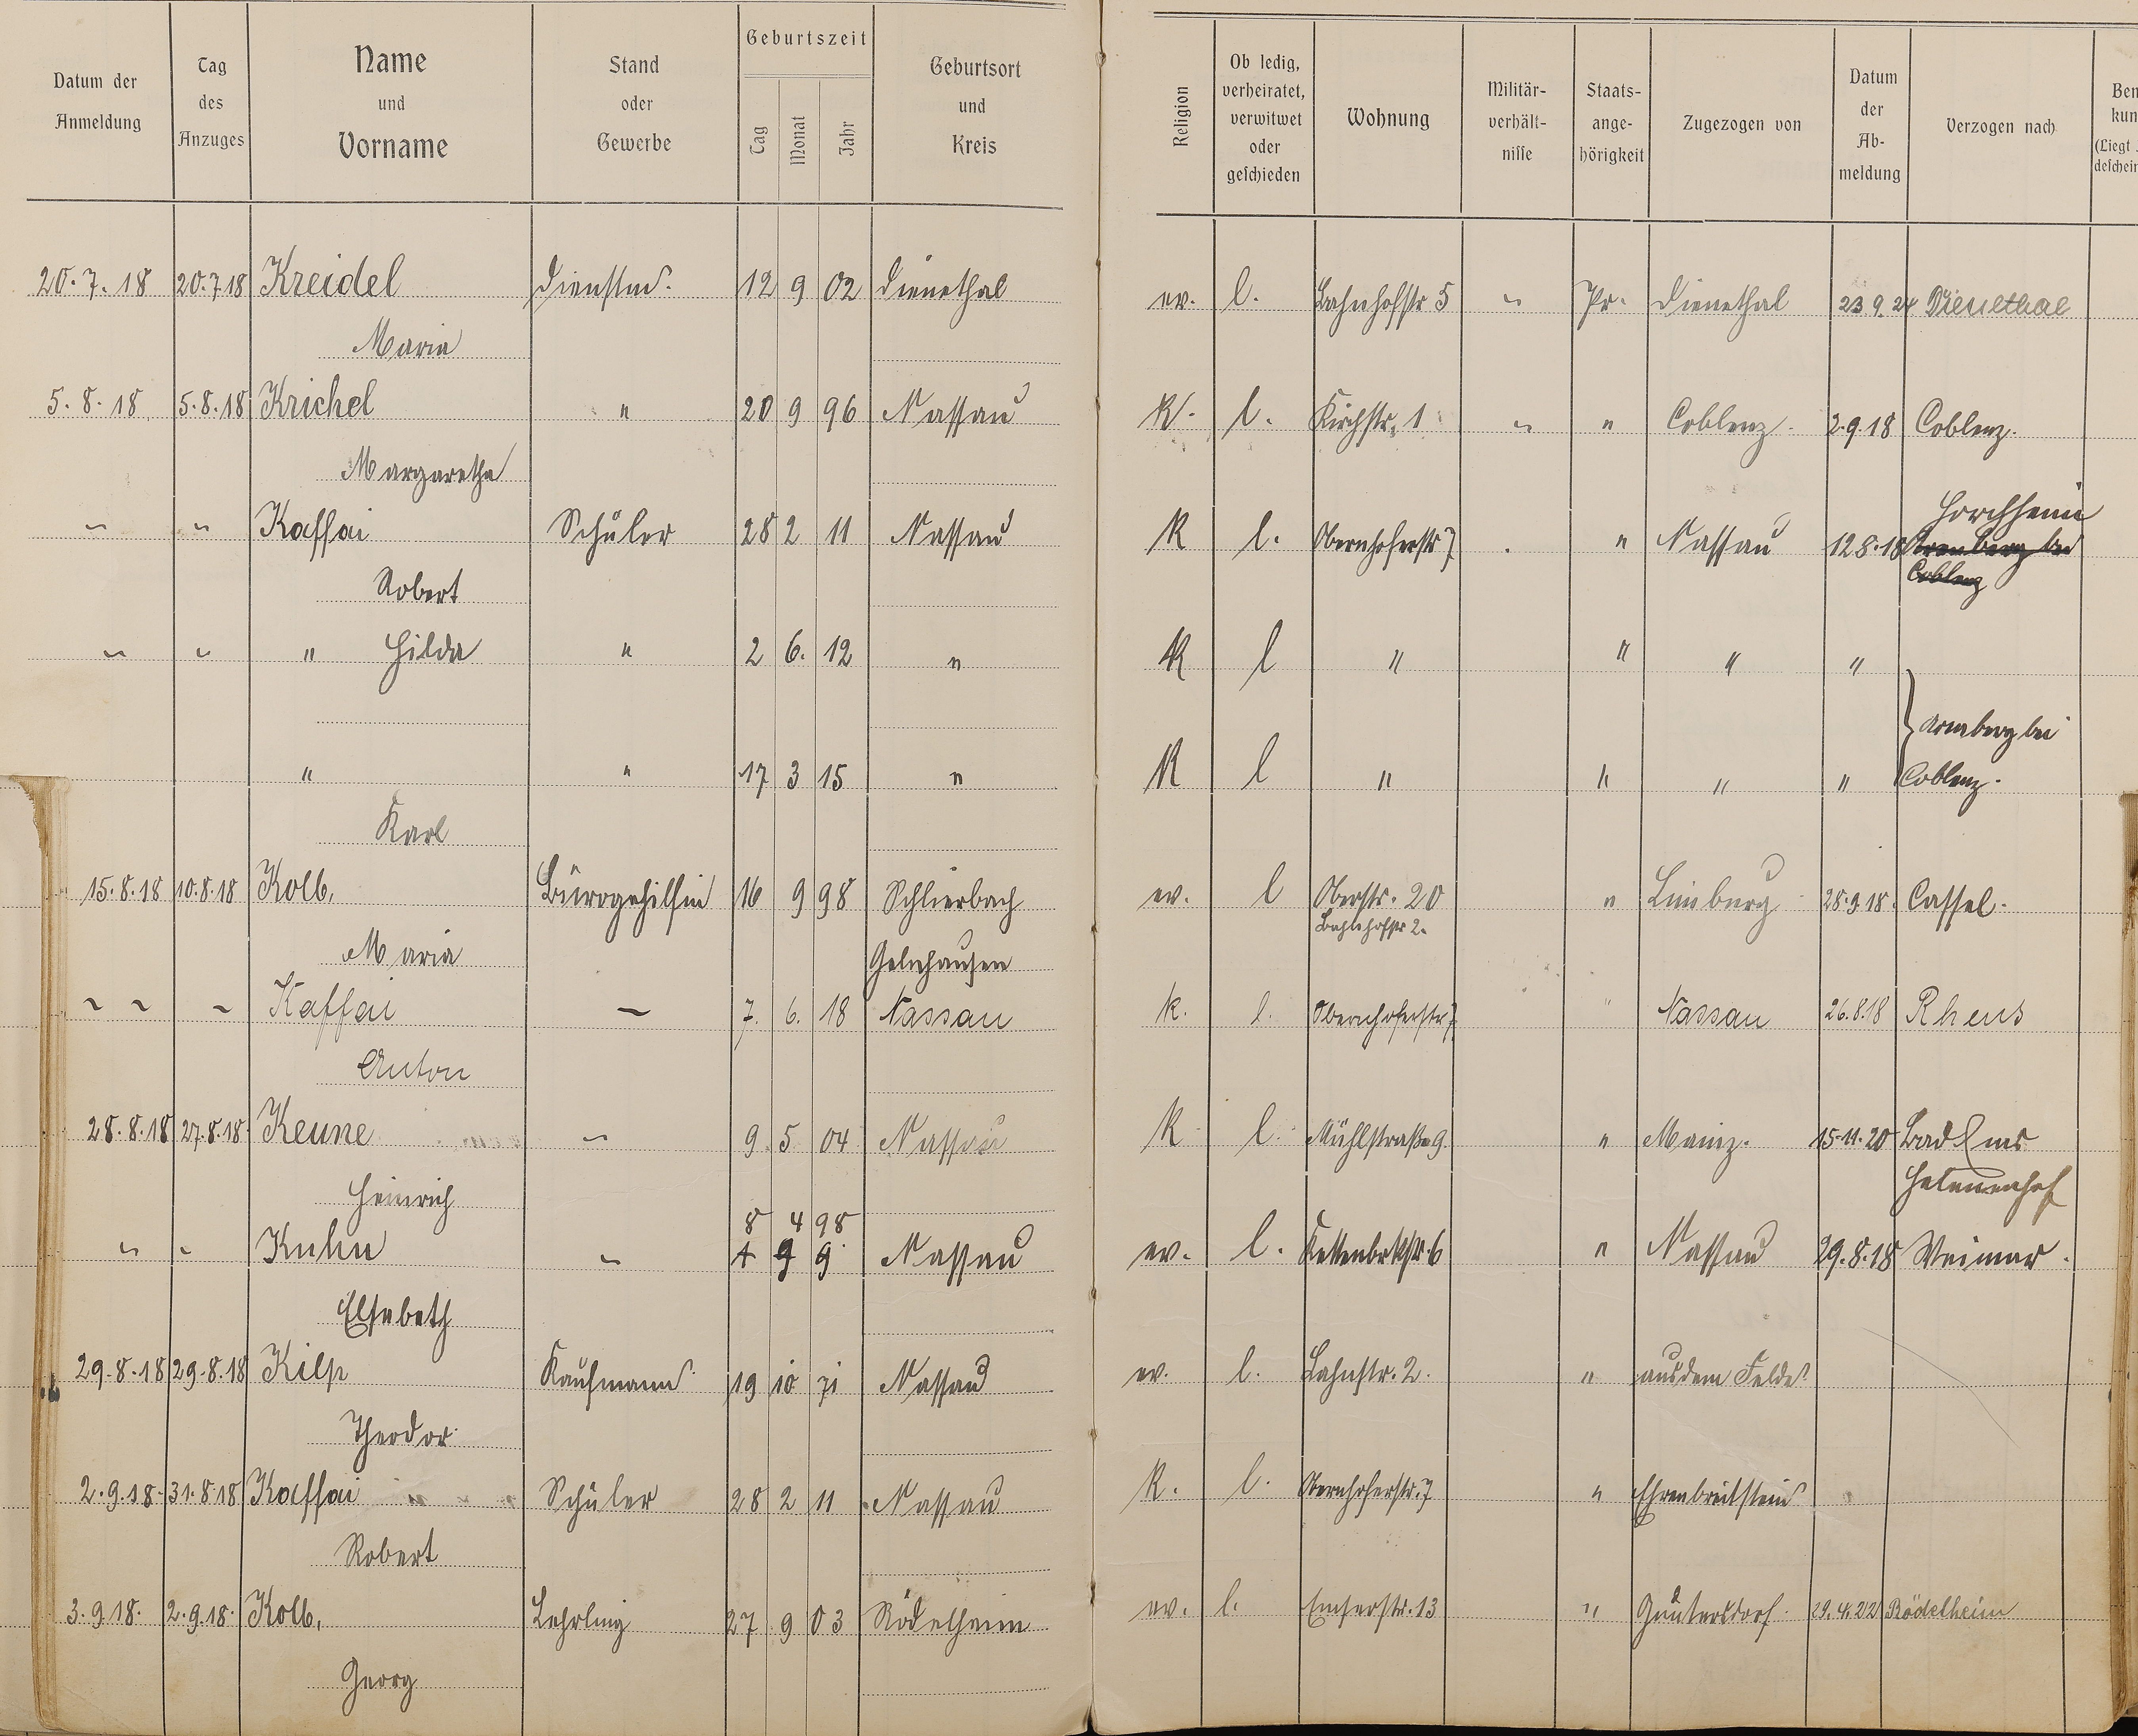 Datum der Anmeldung
Tag des Anzuges
Name und Vorname
Stand oder Gewerbe
Geburtszeit
Tag Monat Jahr
Geburtsort und Kreis
Religion
Ob ledig, verheiratet, verwitwet oder geschieden
Wohnung
Militär-verhält-nisse
Staats-ange-hörigkeit
Zugezogen von
Datum der Ab-meldung
Verzogen nach
20.7.18 20.7.18 Kreidel Dienstm. 12 9 02 Dienethal ev. l. Bahnhofstr 5 " Pr. Dienethal 23.9.24 Dienethal
Maria
5.8.18 5.8.18 Krichel " 20 9 96 Nassau K. l. Kirchstr. 1 " " Coblenz 2.9.18 Coblenz.
Margaretha
Horchheim
" " Kaffai Schüler 28 2 11 Nassau K l. Obernhoferstr 7 " Nassau 12.8.18 Arenberg bei
Robert Coblenz
" " " Hilda " 2 6. 12 " K l " " " "
Arenberg bei
" " 17 3 15 " K l " " " " Coblenz.
Karl
15.8.18 10.8.18 Kolb, Bürogehilfin 16 9 98 Schlierbach ev. l Oberstr. 20 " Limburg 28.9.18. Cassel.
Maria Gelnhausen
" " " Kaffai 7. 6. 18 Nassau k. l. Obernhoferstr 7 " Nassau 26.8.18 Rhens
Anton
28.8.18 27.8.18 Keune " 9 5 04 Nassau K l. Mühlstraße 9. " Mainz. 15.11.20 Bad Ems
Heinrich Helenenhof
8 4 98
" " Kuhn " 4 9 9 Nassau ev. l. Kettenbrkstr. 6 " Nassau 29.8.18 Weimar.
Elsabeth
29.8.18 29.8.18 Kilp Kaufmann 19 10 71 Nassau ev. l. Lahnstr. 2. " aus dem Felde
Theodor
2.9.18. 31.8.18 Kaffai Schüler 28 2 11 Nassau K. l. Obernhoferstr. 7 " Ehrenbreitstein
Robert
3.9.18. 2.9.18. Kolb, Lehrling 27 9 03 Rödelheim ev. l. Emserstr. 13 " Guntersdorf 29.4.22 Rödelheim
Georg